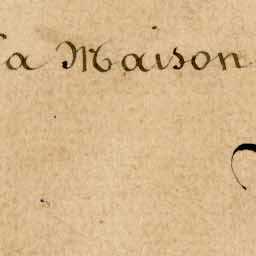 la Maison